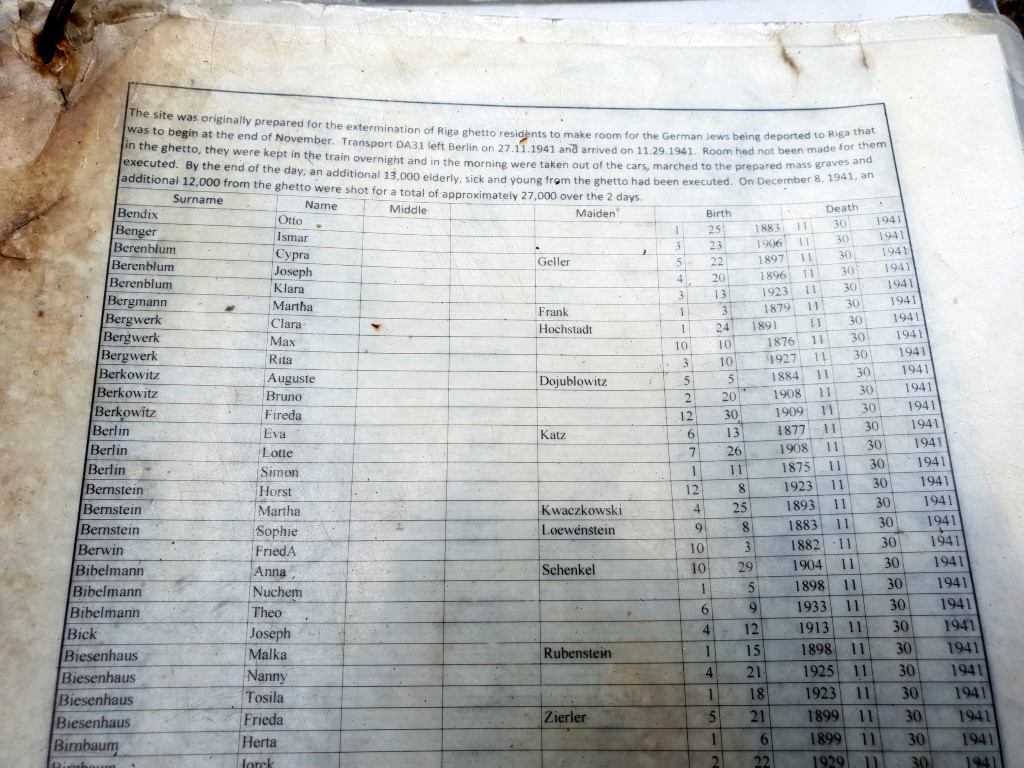 The site was originally prepared for the extermination of Riga ghetto residents to make room for the German Jews being deported to Riga that
was to begin at the end of November. Transport DA31 left Berlin on 27.11.1941 and arrived on 11.29.1941. Room had not been made for them
in the ghetto, they were kept in the train overnight and in the morning were taken out of the cars, marched to the prepared mass graves and
executed. By the end of the day, an additional 13,000 elderly, sick and young from the ghetto had been executed. On December 8, 1941, an
additional 12,000 from the ghetto were shot for a total of approximately 27,000 over the 2 days.
Surname Name Middle Maiden Birth Death
Bendix Otto 1 25 1883 11 30 1941
Benger Ismar 3 23 1906 11 30 1941
Berenblum Cypra Geller 5 22 1897 11 30 1941
Berenblum Joseph 4 20 1896 11 30 1941
Berenblum Klara 3 13 1923 11 30 1941
Bergmann Martha Frank 1 3 1879 11 30 1941
Bergwerk Clara Hochstadt 1 24 1891 11 30 1941
Bergwerk Max 10 10 1876 11 30 1941
Bergwerk Rita 3 10 1927 11 30 1941
Berkowitz Auguste Dojublowitz 5 5 1884 11 30 1941
Berkowitz Bruno 2 20 1908 11 30 1941
Berkowitz Fireda 12 30 1909 11 30 1941
Berlin Eva Katz 6 13 1877 11 30 1941
Berlin Lotte 7 26 1908 11 30 1941
Berlin Simon 1 11 1875 11 30 1941
Bernstein Horst 12 8 1923 11 30 1941
Bernstein Martha Kwaczkowski 4 25 1893 11 30 1941
Bernstein Sophie Loewenstein 9 8 1883 11 30 1941
Berwin FriedA 10 3 1882 11 30 1941
Bibelmann Anna Schenkel 10 29 1904 11 30 1941
Bibelmann Nuchem 1 5 1898 11 30 1941
Bibelmann Theo 6 9 1933 11 30 1941
Bick Joseph 4 12 1913 11 30 1941
Biesenhaus Malka Rubenstein 1 15 1898 11 30 1941
Biesenhaus Nanny 4 21 1925 11 30 1941
Biesenhaus Tosila 1 18 1923 11 30 1941
Biesenhaus Frieda Zierler 5 21 1899 11 30 1941
Birnbaum Herta 1 6 1899 11 30 1941
Birnbaum 2 22 1929 11 30 1941